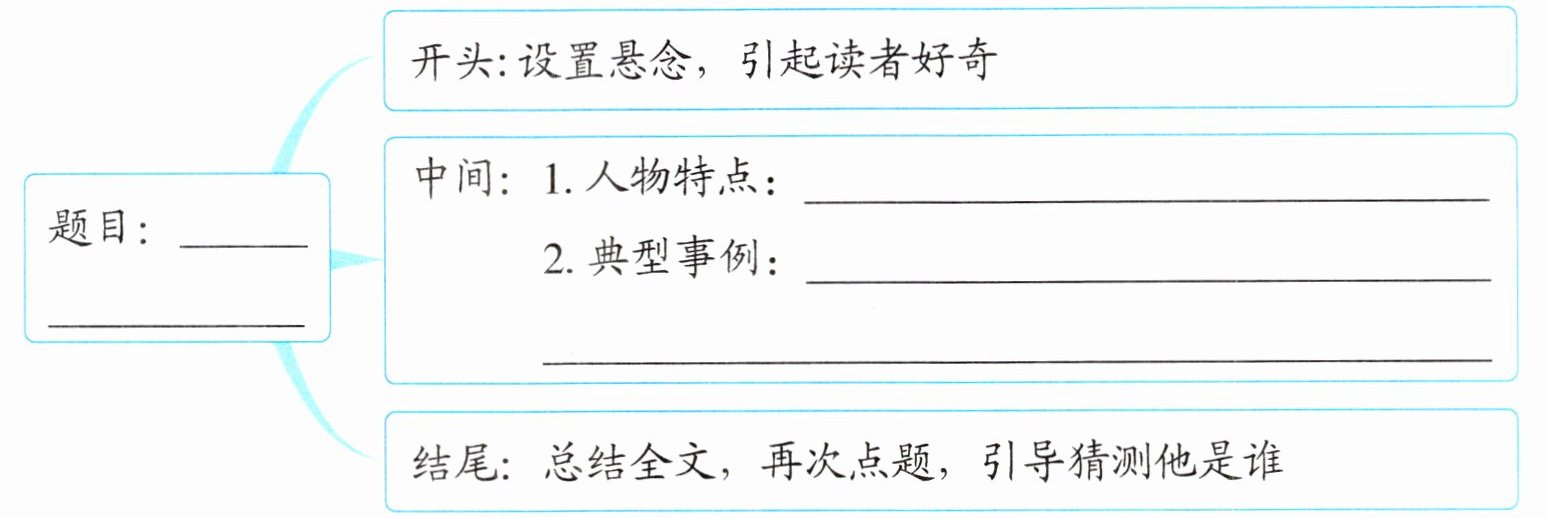 开头：设置悬念，引起读者好奇
中间：1. 人物特点：
题目：
2. 典型事例：
结尾：总结全文，再次点题，引导猜测他是谁